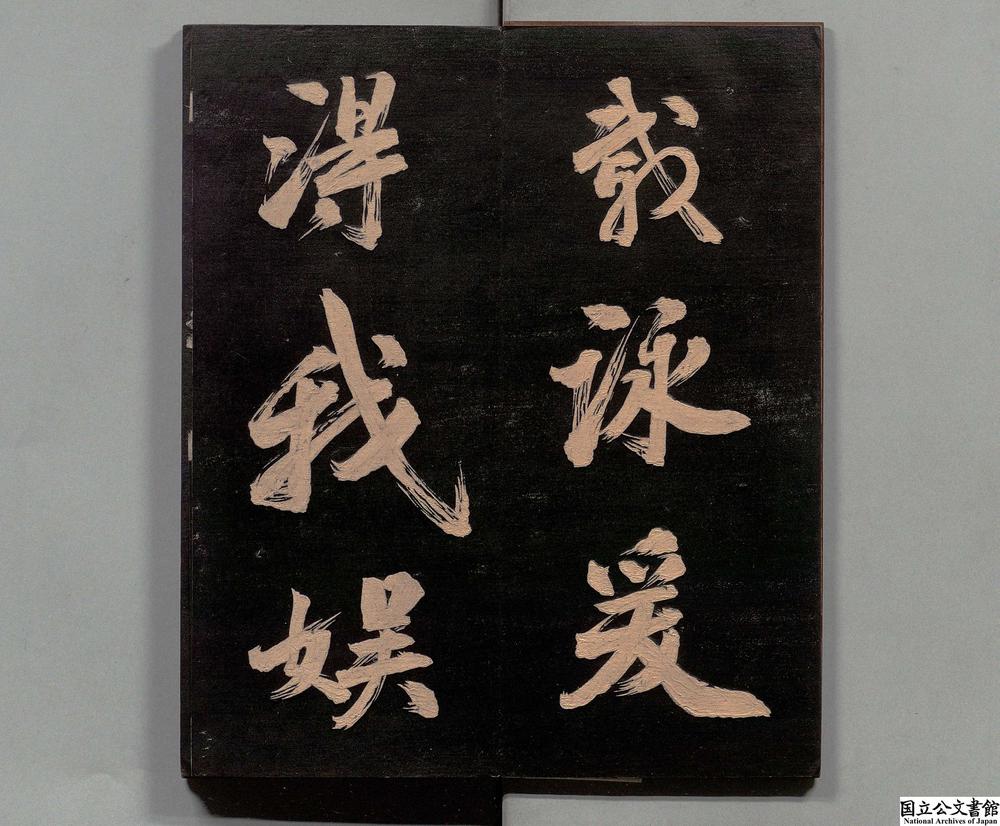 載詠爰
得我娯
国立公文書館
National Archives of Japan